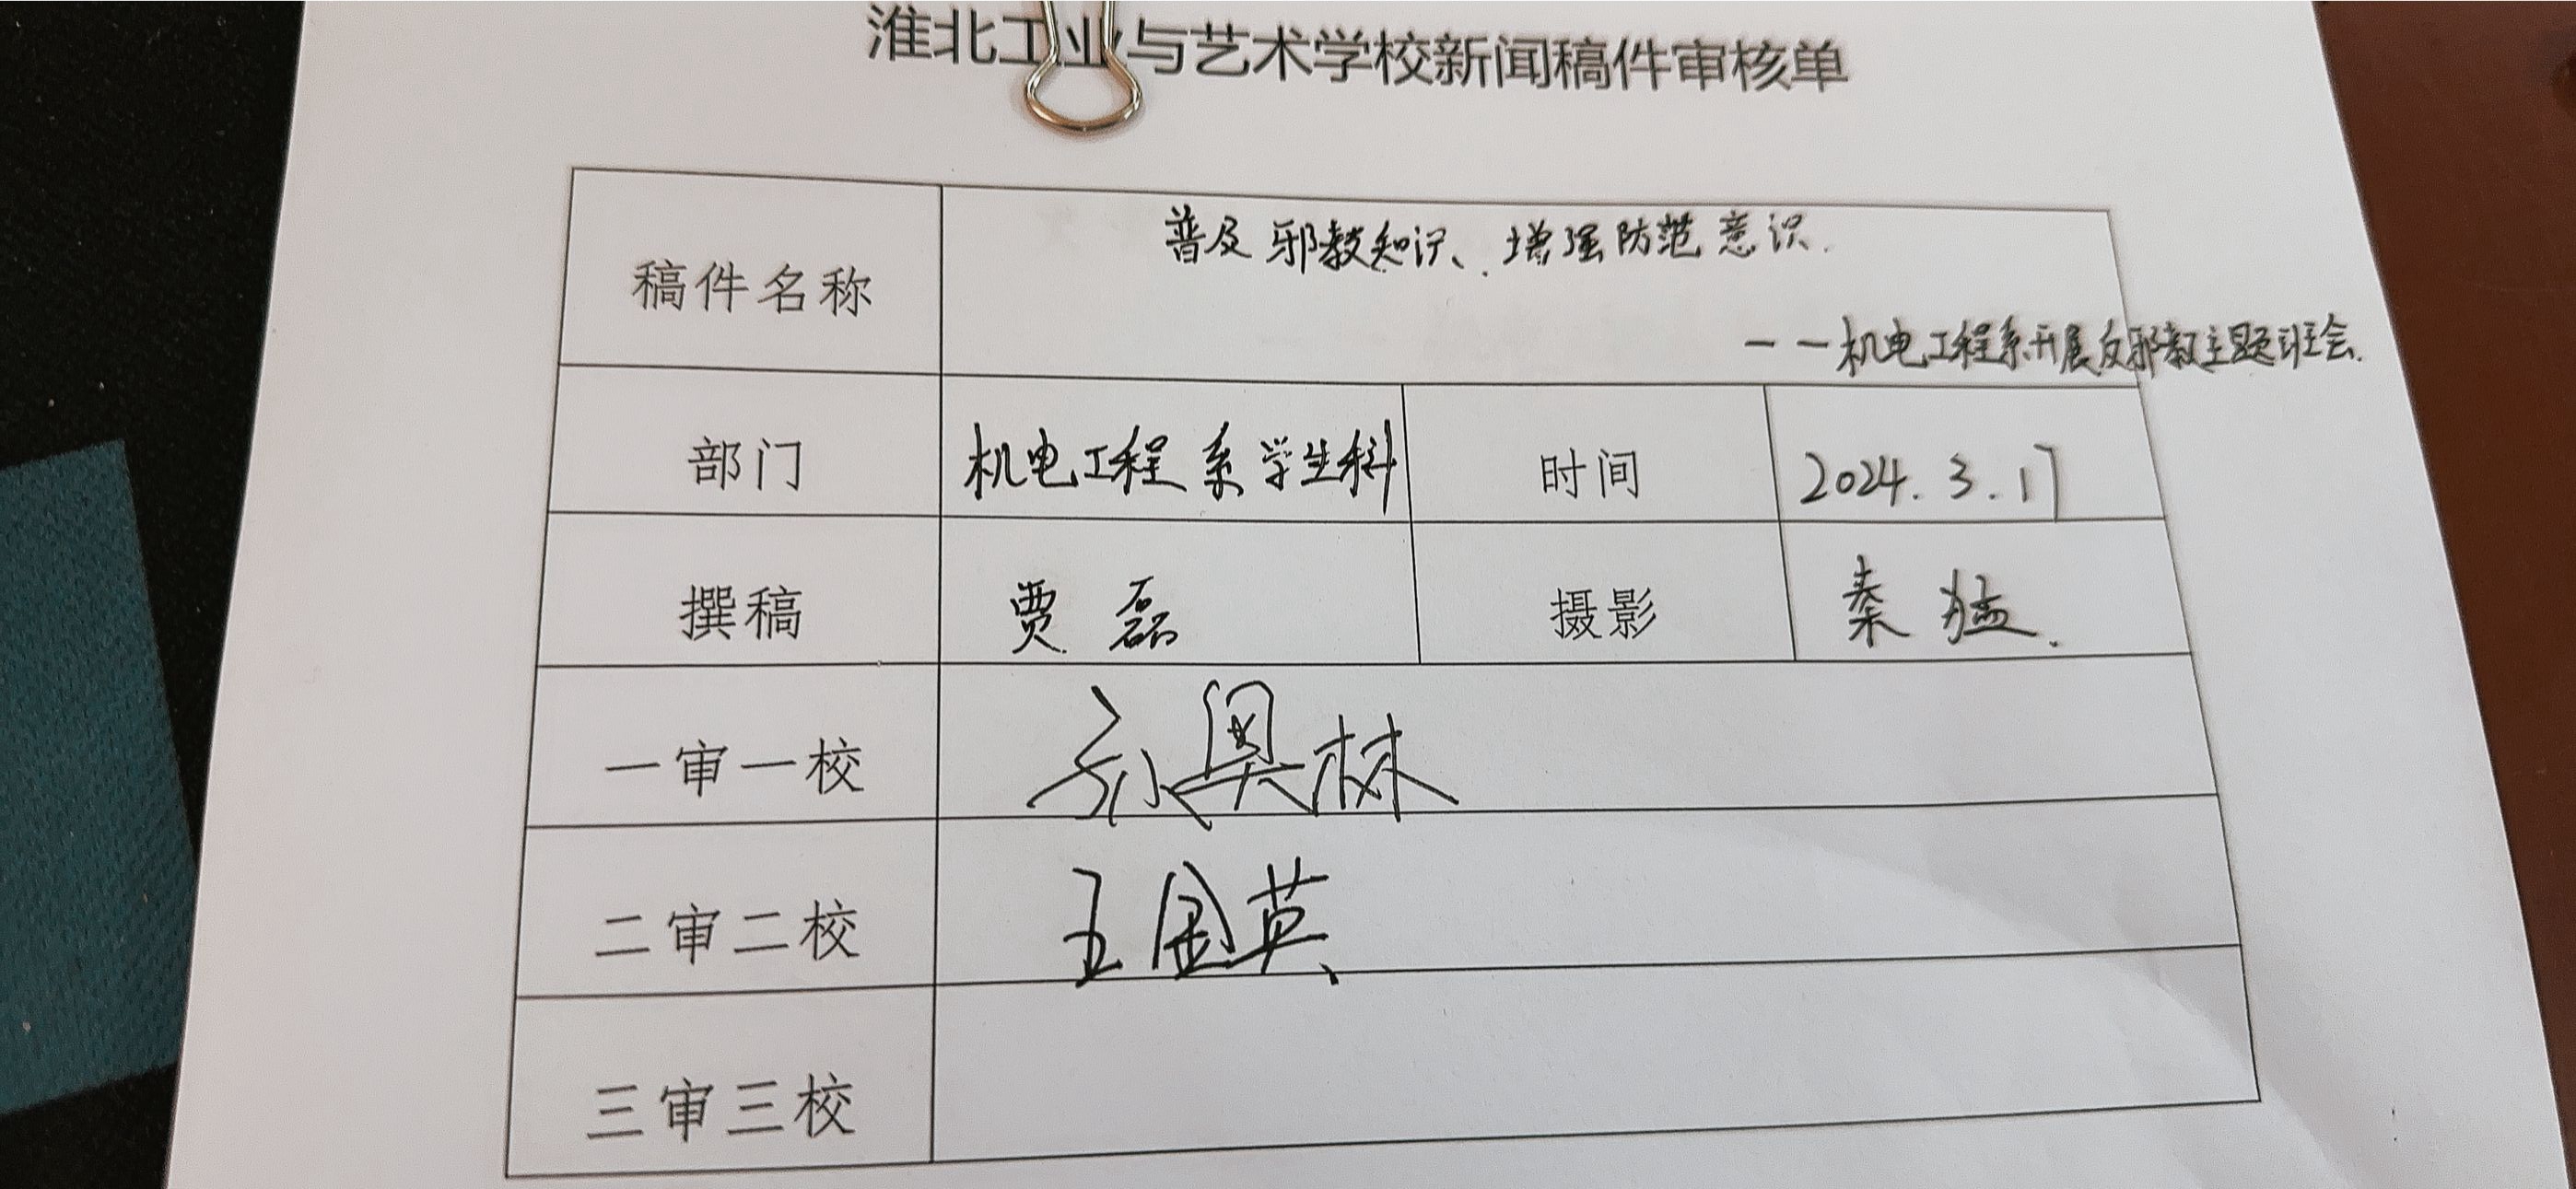 淮北工业与艺术学校新闻稿件审核单
稿件名称
普及邪教知识、增强防范意识.
——机电工程系开展反邪教主题班会.
部门 机电工程系学生科 时间 2024.3.17
撰稿 贾磊 摄影 秦猛.
一审一校 孙奥林
二审二校 王国英
三审三校